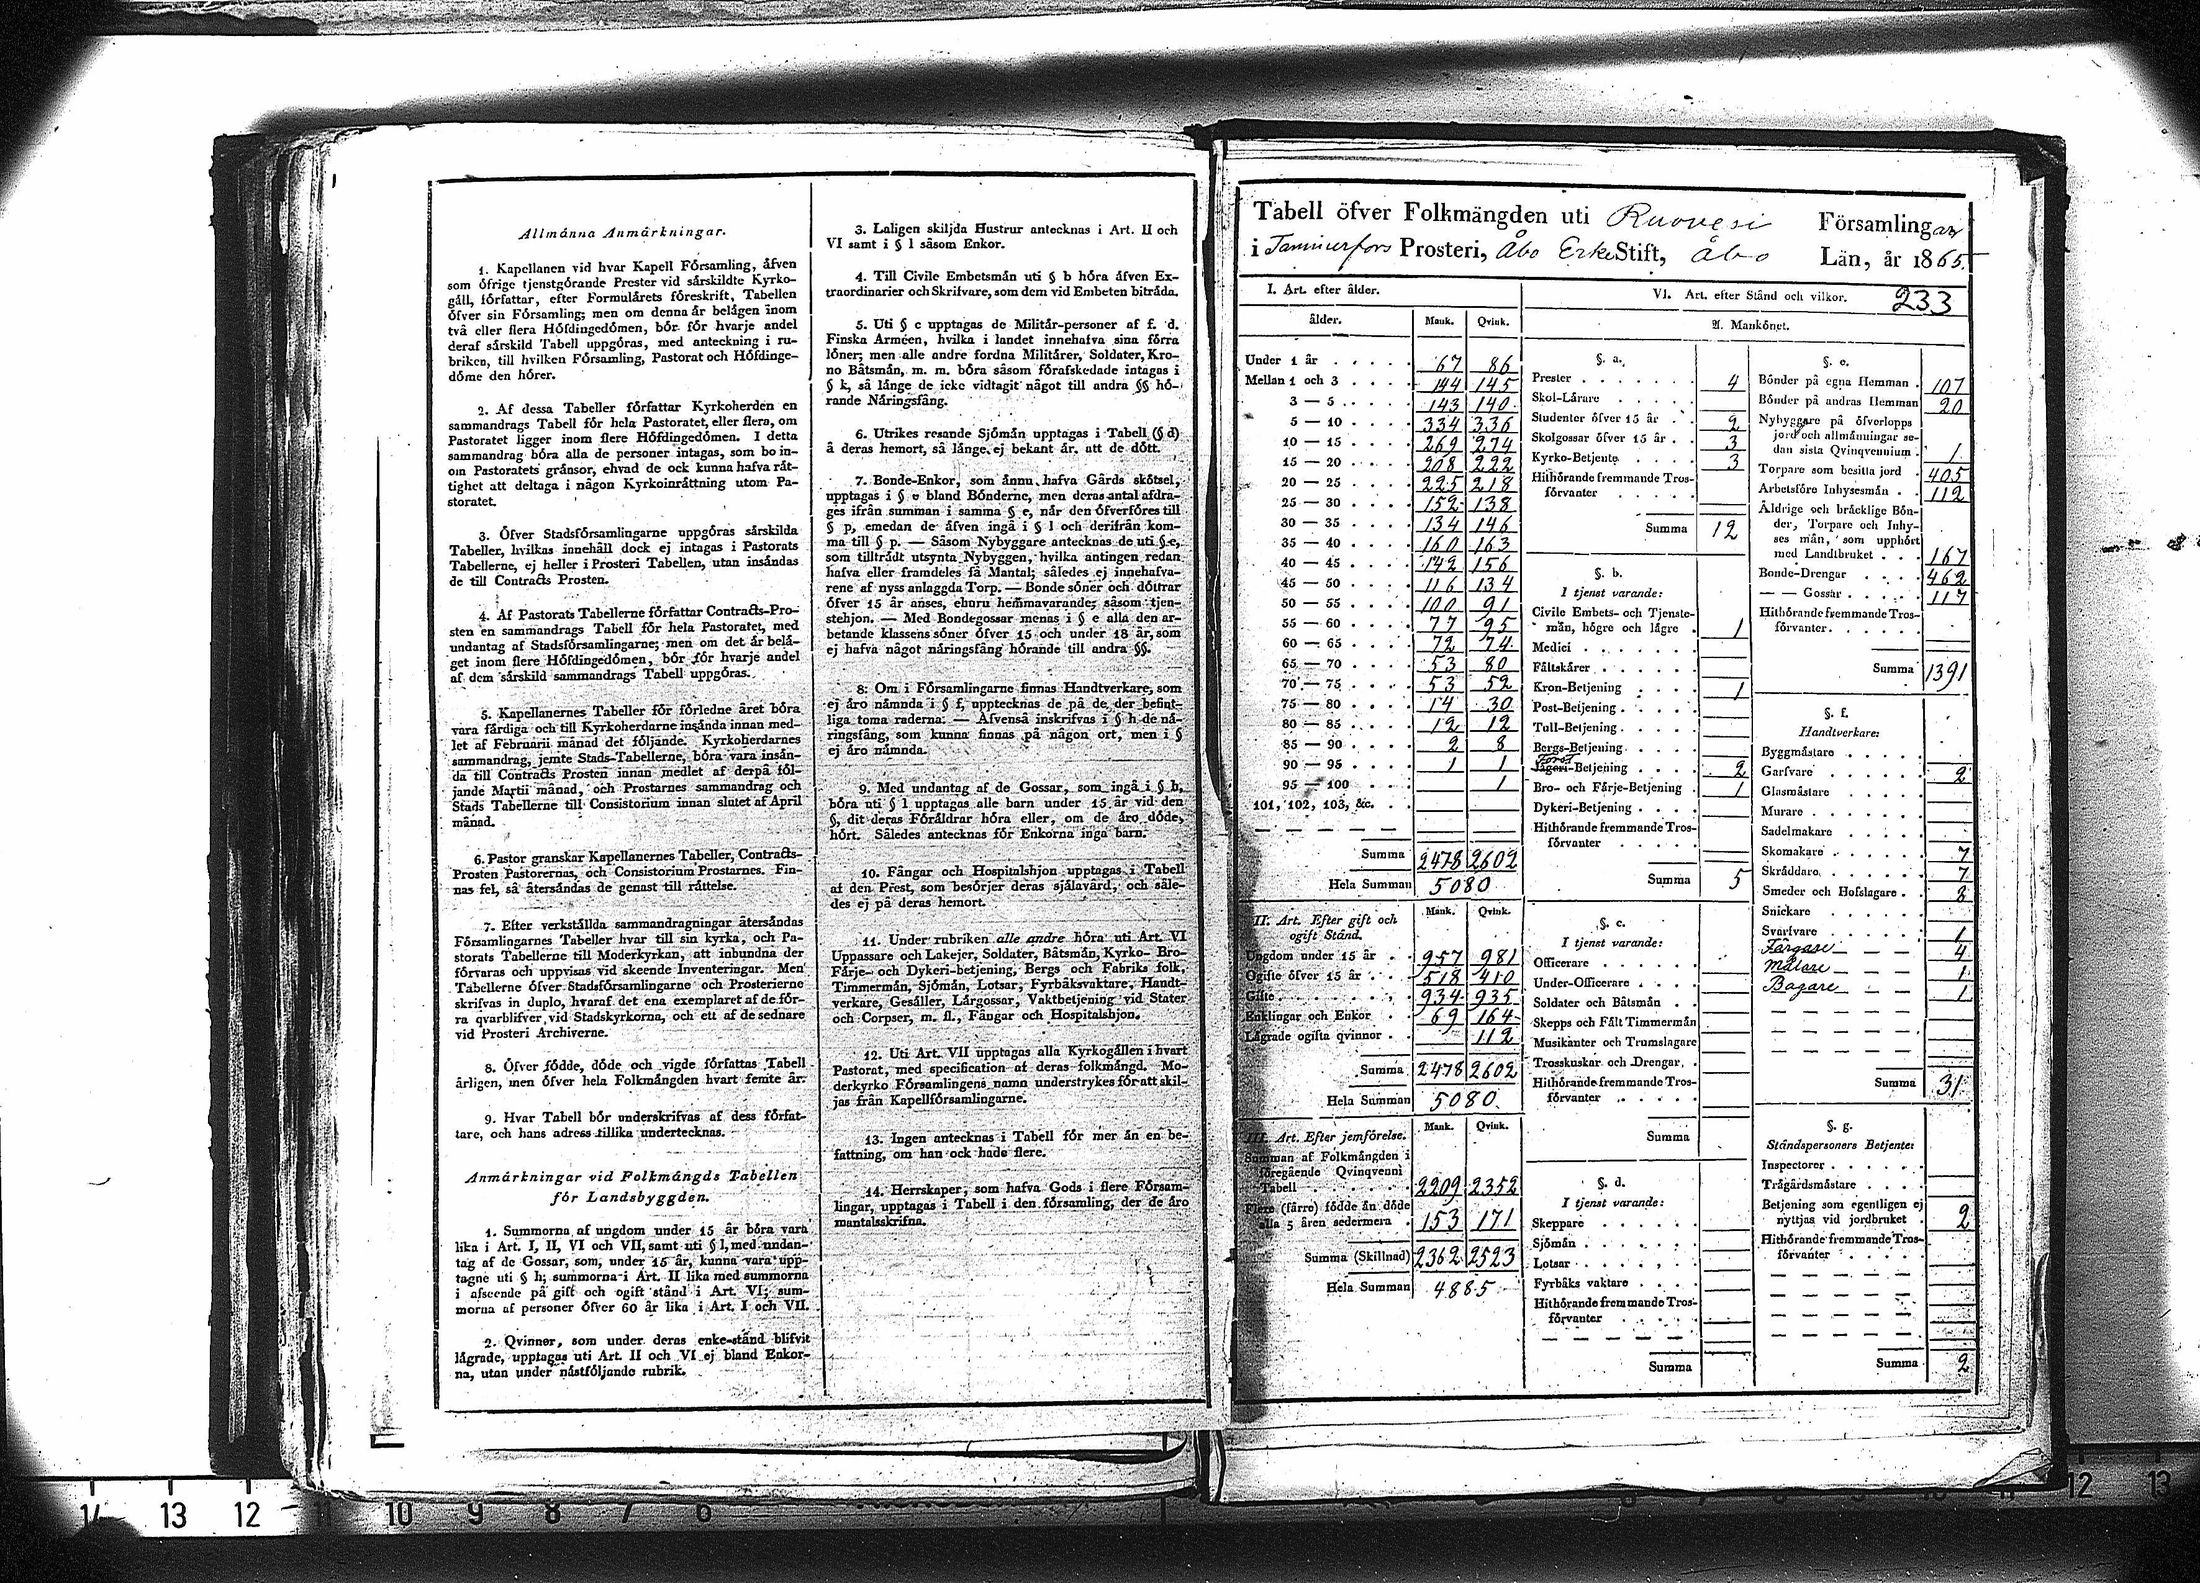 Allmänna Anmärkningar.
1. Kapellanen vid hvar Kapell Församling, äfven
som öfrige tjenstgörande Prester vid särskildte Kyrko-
gäll, författar, efter Formulärets föreskrift, Tabellen
öfver sin Församling; men om denna är belägen inom
två eller flera Höfdingedömen, bör för hvarje andel
deraf särskild Tabell uppgöras, med anteckning i ru-
briken, till hvilken Församling, Pastorat och Höfdinge-
döme den hörer.
2. Af dessa Tabeller författar Kyrkoherden en
sammandrags Tabell för hela Pastoratet, eller flera, om
Pastoratet ligger inom flere Höfdingedömen. I detta
sammandrag böra alla de personer intagas, som bo in-
om Pastoratets gränsor, ehvad de ock kunna hafva rät-
tighet att deltaga i någon Kyrkoinrättning utom Pa-
storatet.
3. Öfver Stadsförsamlingarne uppgöras särskilda
Tabeller, hvilkas innehåll dock ej intagas i Pastorats
Tabellerne, ej heller i Prosteri Tabellen, utan insändas
de till Contracts Prosten.
4. Af Pastorats Tabellerne författar Contracts-Pro-
sten en sammandrags Tabell för hela Pastoratet, med
undantag af Stadsförsamlingarne; men om det är belä-
get inom flere Höfdingedömen, bör för hvarje andel
af dem särskild sammandrags Tabell uppgöras.
5. Kapellanernes Tabeller för förledne året böra
vara färdiga och till Kyrkoherdarne insända innan med-
let af Februarii månad det följande. Kyrkoherdarnes
sammandrag, jemte Stads-Tabellerne, böra vara insän-
da till Contracts Prosten innan medlet af derpå föl-
jande Martii månad, och Prostarnes sammandrag och
Stads Tabellerne till Consistorium innan slutet af April
månad.
6. Pastor granskar Kapellanernes Tabeller, Contracts-
Prosten Pastorernas, och Consistorium Prostarnes. Fin-
nas fel, så återsändas de genast till rättelse.
7. Efter verkställda sammandragningar återsändas
Församlingarnes Tabeller hvar till sin kyrka, och Pa-
storats Tabellerne till Moderkyrkan, att inbundna der
förvaras och uppvisas vid skeende Inventeringar. Men
Tabellerne öfver Stadsförsamlingarne och Prosterierne
skrifvas in duplo, hvaraf det ena exemplaret af de för-
ra qvarblifver vid Stadskyrkorna, och ett af de sednare
vid Prosteri Archiverne.
8. Öfver födde, döde och vigde författas Tabell
årligen, men öfver hela Folkmängden hvart femte år.
9. Hvar Tabell bör underskrifvas af dess förfat-
tare, och hans adress tillika undertecknas.
Anmärkningar vid Folkmängds Tabellen
för Landsbyggden.
1. Summorna af ungdom under 15 år böra vara
lika i Art. I, II, VI och VII, samt uti § l, med undan-
tag af de Gossar, som, under 15 år, kunna vara upp-
tagne uti § h; summorna i Art. II lika med summorna
i afseende på gift och ogift stånd i Art. VI; sum-
morna af personer öfver 60 år lika i Art. I och VII.
2. Qvinnor, som under deras enke-stånd blifvit
lägrade, upptagas uti Art. II och VI ej bland Enkor-
na, utan under nästföljande rubrik.
3. Laligen skiljda Hustrur antecknas i Art. II och
VI samt i § l såsom Enkor.
4. Till Civile Embetsmän uti § b höra äfven Ex-
traordinarier och Skrifvare, som dem vid Embeten biträda.
5. Uti § c upptagas de Militär-personer af f. d.
Finska Arméen, hvilka i landet innehafva sina förra
löner; men alle andre fordna Militärer, Soldater, Kro-
no Båtsmän, m. m. böra såsom förafskedade intagas i
§ k, så länge de icke vidtagit något till andra §§ hö-
rande Näringsfång.
6. Utrikes resande Sjömän upptagas i Tabell (§ d)
å deras hemort, så länge ej bekant är, att de dött.
7. Bonde-Enkor, som ännu hafva Gårds skötsel,
upptagas i § e bland Bönderne, men deras antal afdra-
ges ifrån summan i samma § e, när den öfverföres till
§ p, emedan de äfven ingå i § l och derifrån kom-
ma till § p. — Såsom Nybyggare antecknas de uti § e,
som tillträdt utsynta Nybyggen, hvilka antingen redan
hafva eller framdeles få Mantal; således ej innehafva-
rene af nyss anlaggda Torp. — Bonde söner och döttrar
öfver 15 år anses, ehuru hemmavarande, såsom tjen-
stehjon. — Med Bondegossar menas i § e alla den ar-
betande klassens söner öfver 15 och under 18 år, som
ej hafva något näringsfång hörande till andra §§.
8. Om i Församlingarne finnas Handtverkare, som
ej äro nämnda i § f, upptecknas de på de der befint-
liga toma raderna. — Äfvenså inskrifvas i § h de nä-
ringsfång, som kunna finnas på någon ort, men i §
ej äro nämnda.
9. Med undantag af de Gossar, som ingå i § h,
böra uti § l upptagas alle barn under 15 år vid den
§, dit deras Föräldrar höra eller, om de äro döde,
hört. Således antecknas för Enkorna inga barn.
10. Fångar och Hospitalshjon upptagas i Tabell
af den Prest, som besörjer deras själavård, och såle-
des ej på deras hemort.
11. Under rubriken alle andre höra uti Art. VI
Uppassare och Lakejer, Soldater, Båtsmän, Kyrko- Bro-
Färje- och Dykeri-betjening, Bergs och Fabriks folk,
Timmermän, Sjömän, Lotsar, Fyrbåksvaktare, Handt-
verkare, Gesäller, Lärgossar, Vaktbetjening vid Stater
och Corpser, m. fl., Fångar och Hospitalshjon.
12. Uti Art. VII upptagas alla Kyrkogällen i hvart
Pastorat, med specification af deras folkmängd. Mo-
derkyrko Församlingens namn understrykes för att skil-
jas från Kapellförsamlingarne.
13. Ingen antecknas i Tabell för mer än en be-
fattning, om han ock hade flere.
14. Herrskaper, som hafva Gods i flere Försam-
lingar, upptagas i Tabell i den församling, der de äro
mantalsskrifna.
Tabell öfver Folkmängden uti Ruovesi Församlingar
i Tammerfors Prosteri, Åbo ErkeStift, Åbo Län, år 1865.
I. Art. efter ålder.
ålder. Mank. Qvink.
Under 1 år 67 86
Mellan 1 och 3 144 145
3 — 5 143 140
5 — 10 334 336
10 — 15 269 274
15 — 20 208 222
20 — 25 225 218
25 — 30 152 138
30 — 35 134 146
35 — 40 160 163
40 — 45 142 156
45 — 50 116 134
50 — 55 100 91
55 — 60 77 95
60 — 65 72 74
65 — 70 53 80
70 — 75 53 52
75 — 80 14 30
80 — 85 12 12
85 — 90 2 8
90 — 95 1 1
95 — 100 1
101, 102, 103, &c.
Summa 2478 2602
Hela Summan 5080
Mank. Qvink.
II. Art. Efter gift och
ogift Stånd.
Ungdom under 15 år 957 981
Ogifte öfver 15 år 518 410
Gifte 934 935
Enklingar och Enkor 69 164
Lägrade ogifta qvinnor 112
Summa 2478 2602
Hela Summan 5080
Mank. Qvink.
III. Art. Efter jemförelse.
Summan af Folkmängden i
föregående Qvinqvenni
Tabell 2209 2352
Flere (färre) födde än döde
alla 5 åren sedermera 153 171
Summa (Skillnad) 2362 2523
Hela Summan 4885
VI. Art. efter Stånd och vilkor. 233
A. Mankönet.
§. a.
Prester 4
Skol-Lärare
Studenter öfver 15 år 2
Skolgossar öfver 15 år 3
Kyrko-Betjente 3
Hithörande fremmande Tros-
förvanter
Summa 12
§. b.
I tjenst varande:
Civile Embets- och Tjenste-
män, högre och lägre 1
Medici
Fältskärer
Kron-Betjening 1
Post-Betjening
Tull-Betjening
Bergs-Betjening
Forst
Jägeri-Betjening 2
Bro- och Färje-Betjening 1
Dykeri-Betjening
Hithörande fremmande Tros-
förvanter
Summa 5
§. c.
I tjenst varande:
Officerare
Under-Officerare
Soldater och Båtsmän
Skepps och Fält Timmermän
Musikanter och Trumslagare
Trosskuskar och Drengar
Hithörande fremmande Tros-
förvanter
Summa
§. d.
I tjenst varande:
Skeppare
Sjömän
Lotsar
Fyrbåks vaktare
Hithörande fremmande Tros-
förvanter
Summa
§. e.
Bönder på egna Hemman 107
Bönder på andras Hemman 20
Nybyggare på öfverlopps
jord och allmänningar se-
dan sista Qvinqvennium 1
Torpare som besitta jord 405
Arbetsföre Inhysesmän 112
Äldrige och bräcklige Bön-
der, Torpare och Inhy-
ses män, som upphört
med Landtbruket 167
Bonde-Drengar 462
— — Gossar 117
Hithörande fremmande Tros-
förvanter
Summa 1391
§. f.
Handtverkare:
Byggmästare
Garfvare 2
Glasmästare
Murare
Sadelmakare
Skomakare 7
Skräddare 7
Smeder och Hofslagare 8
Snickare
Svarfvare 1
Färgare 4
Målare 1
Bagare 1
Summa 31
§. g.
Ståndspersoners Betjente:
Inspectorer
Trägårdsmästare
Betjening som egentligen ej
nyttjas vid jordbruket 2
Hithörande fremmande Tros-
förvanter
Summa 2
14 13 12 10 9 8 7 6
12 13